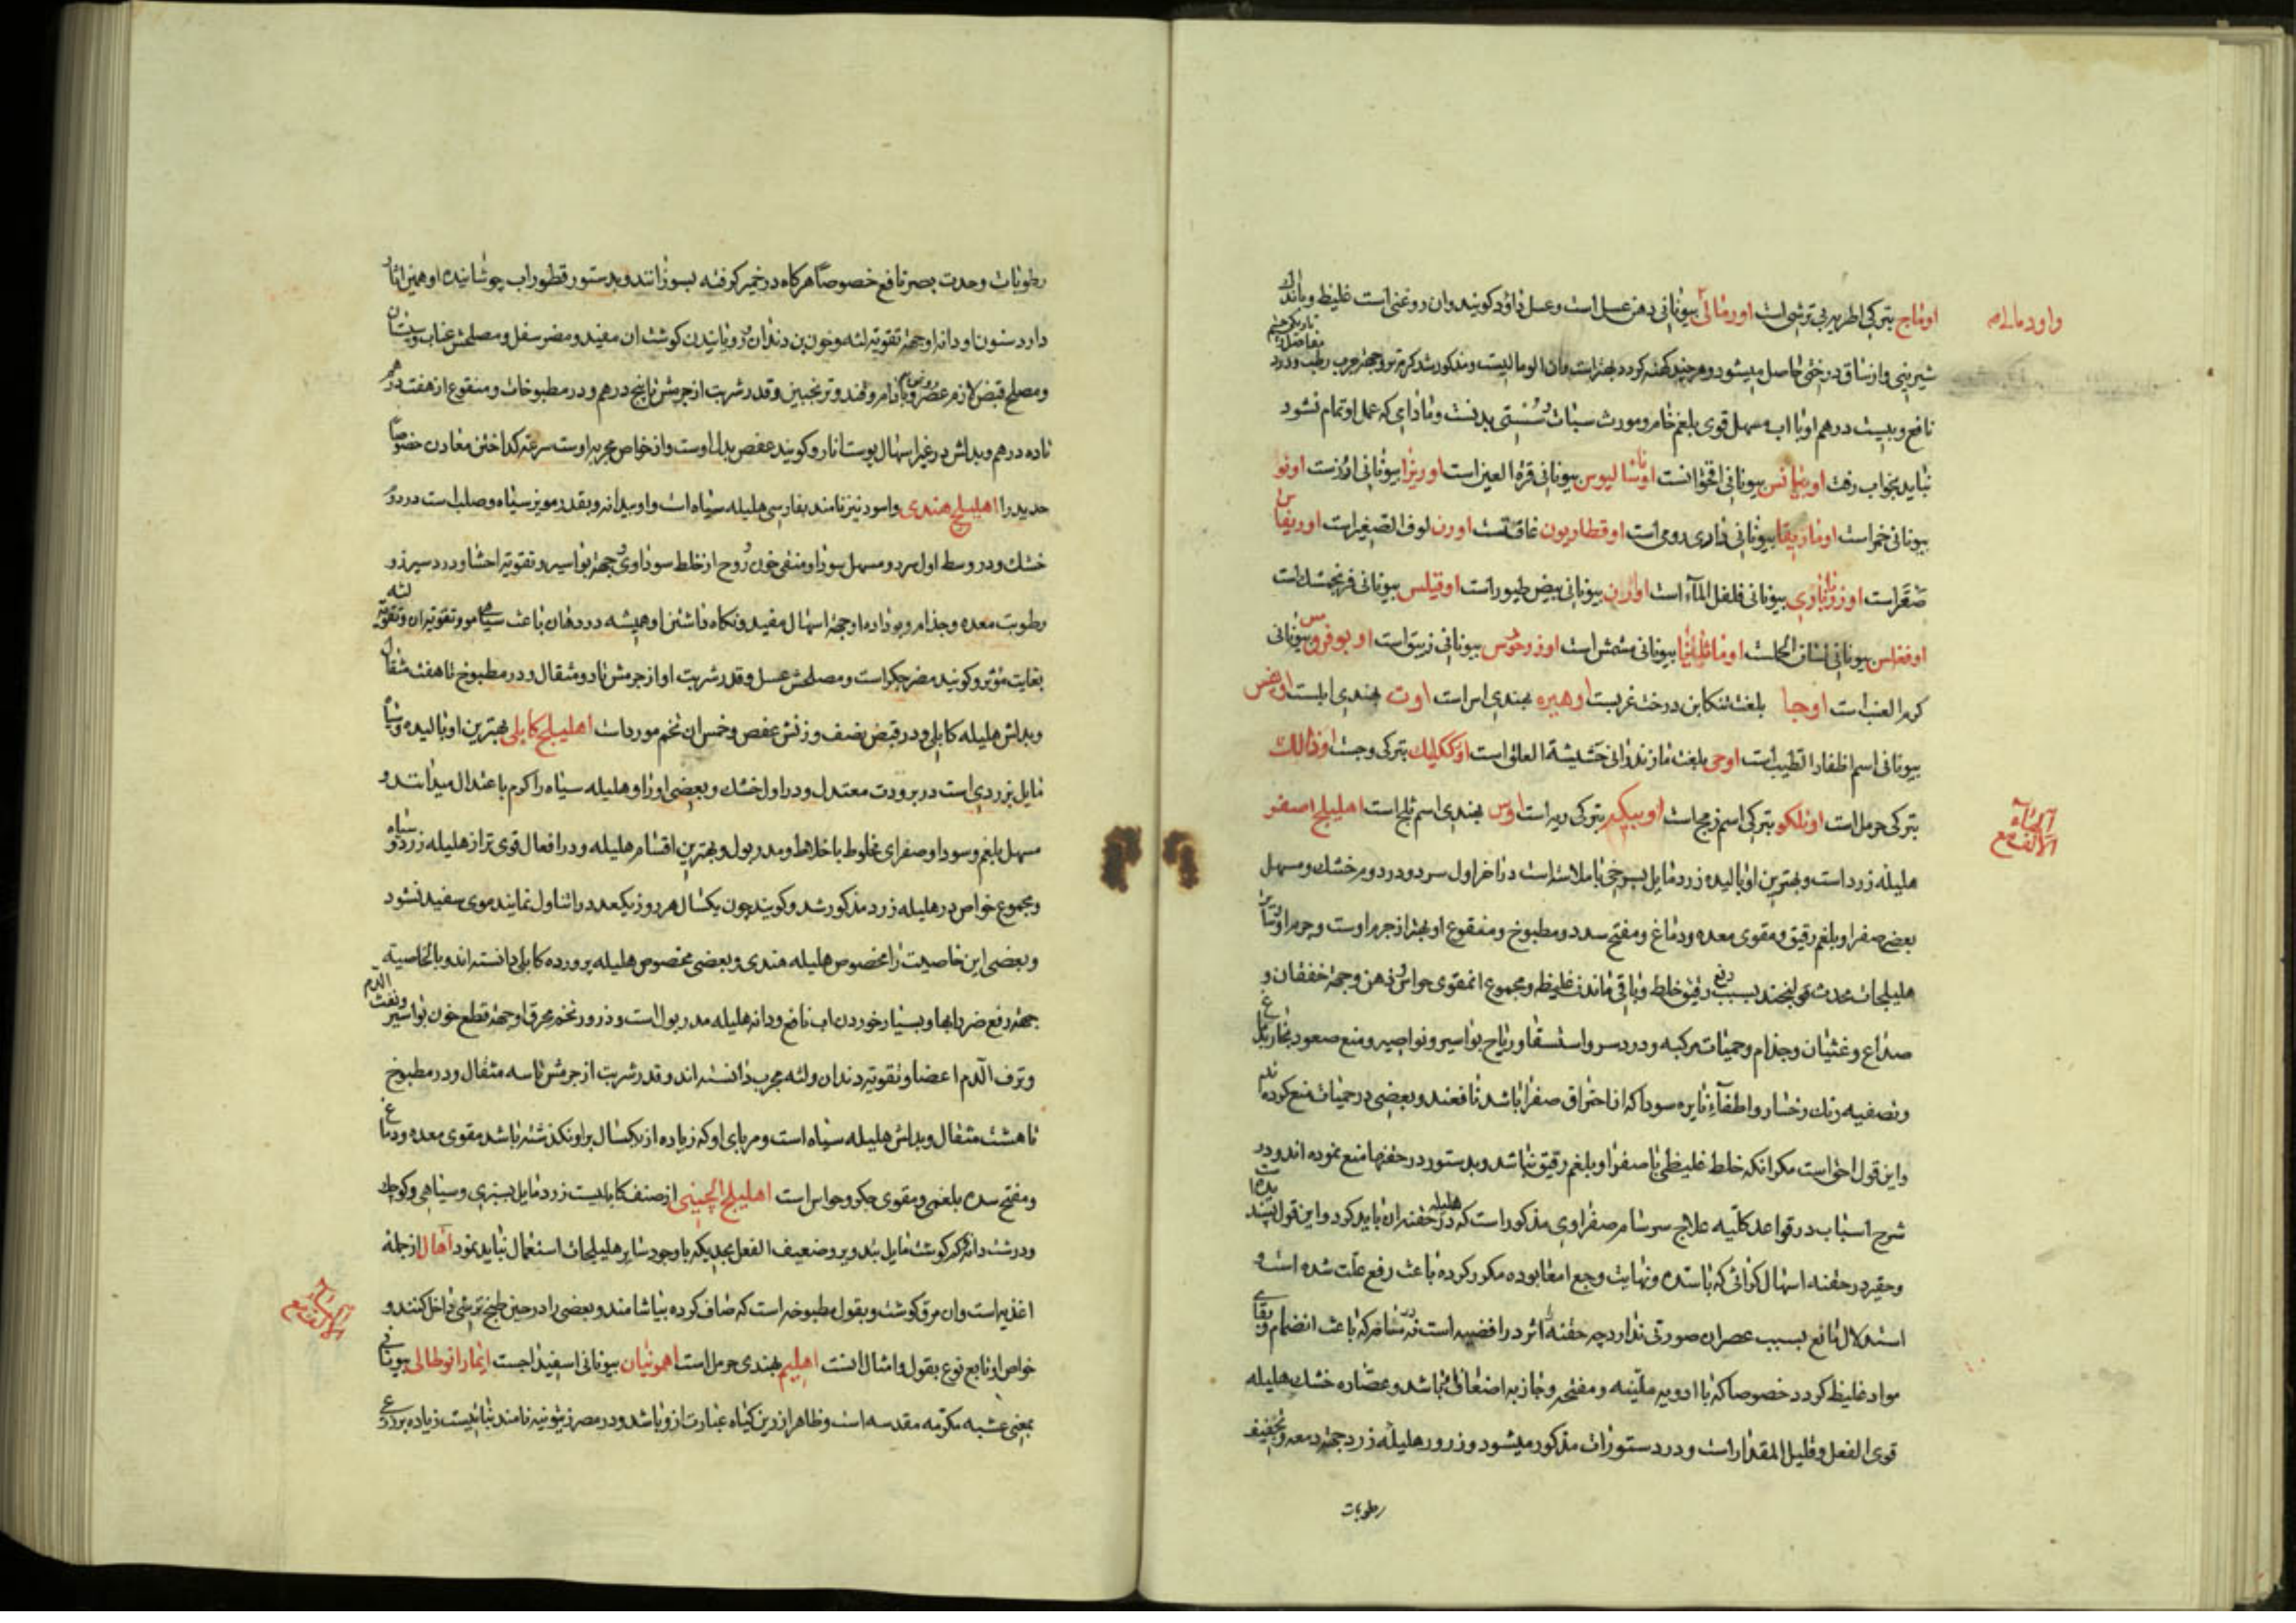 اوماج بترکی اطریه بی ترشی است اورمالی بیونانی دهن عسل است و عسل داؤد کویند وان روغنی است غلیظ و باندک
شیرینی و از ساق درختی حاصل میشود و هرچند کهنه کردد بهتر است
نافع و بیست درهم او با اب مسهل قوی بلغم خام و مورث سبات و سستی بدنست و مادامی که عمل او تمام نشود
نباید بخواب رفت بیونانی اقحوانست بیونانی قرة العین است اوریزا بیونانی ارزست اونو
بیونانی خمر است اوماریقا بیونانی داری رومی است اوقطاریون غافتست اورن لوف الصغیر است
صقر است بیونانی فلفل الماء است بیونانی بیض طیور است اوقیلس بیونانی فرنجمشک است
بیونانی لسان الحملست بیونانی مشمش است بیونانی زیبق است بیونانی
کرم العنب است اوجا بلغت تنکابن درخت غربست اوهیره بهندی اس است اوت بهندی ابلست
بیونانی اسم اظفار الطیب است اوجی بلغت مازندرانی حشیشة العلق است اوککلیک بترکی وجست
بترکی حرمل است اوتلکو بترکی اسم زمج است اوبیکر بترکی ریه است اوس بهندی اسم ثلج است اهلیلج اصفر
هلیله زرد است و بهترین او بالیده زرد مایل بسرخی با ملاست است در اخر اول سرد و در دوم خشک و مسهل
بعض صفرا و بلغم رقیق و مقوی معده و دماغ و مفتح سدد و مطبوخ و منقوع او بهتر از جرم اوست و جرم او و سایر
هلیلجات محدث قولنجند بسبب دفع رقیق خلط و باقی ماندن غلیظ و مجموع ان مقوی حواس و ذهن و جهة خفقان و
صداع و غثیان و جذام و حمیات مرکبه و درد سر و استسقا و ریاح بواسیر و نواصیر و منع صعود بخار بدماغ
و تصفیه رنک رخسار و اطفآء نایره سودا که از احتراق صفرا باشد نافعند و بعضی در حمیات منع کرده اند
و این قول احق است مکر انکه خلط غلیظی با صفرا و بلغم رقیق نباشد و بدستور در حقنها منع نموده اند و در
شرح اسباب در قواعد کلیه علاج سرسام صفراوی مذکور است که هلیله در حقنه ان باید کرد و این قول
و حقیر در حقنه اسهال کرانی که با سده و نهایت وجع امعا بوده مکرر کرده باعث رفع علت شده است و
استدلال مانع بسبب عصر ان صورتی ندارد چه حقنه را اثر در اقضیه است نه در مساقر که باعث انضمام و بقای
مواد غلیظ کردد خصوصا که با ادویه ملینه و مفتحه و جاذبه اضعاف ان باشد و عصاره خشک هلیله
قوی الفعل و قلیل المقدار است و در دستورات مذکور میشود و زرور هلیله زرد جهة دمعه و تجفیف
رطوبات
رطوبات و حدت بصر نافع خصوصاً هرکاه در خمیر کرفته بسوزانند و بدستور قطور اب جوشانیده او همین اثار
دارد سنون او و دانه او جهة تقویة لثه و خون بن دندان و رویانیدن کوشت ان مفید و مضر سفل و مصلحش عناب و سپستان
و مصلح قبض لازم عصر و روغن بادام و قند و ترنجبین و قدر شربت از جرمش تا پنج درهم و در مطبوخات و منقوع از هفت درهم
تا ده درهم و بدلش در غیر اسهال پوست انار و کویند عفص بدل اوست و از خواص مجربه اوست سرعة کداختن معادن خصوصاً
حدید را اهلیلج هندی و اسود نیز نامند بفارسی هلیله سیاه است و او بیدانه و بقدر مویز سیاه و صلب است در دوم
خشک و در وسط اول سرد و مسهل سودا و منقی خون و روح از خلط سوداوی و جهة بواسیر و تقویة احشا و درد سپرز و
رطوبت معده و جذام و بو داده او جهة اسهال مفید و نکاه داشتن او همیشه در دهان باعث سیاهی مو و تقویة ان و تقویة لثه
بغایت مؤثر و کویند مضر جکر است و مصلحش عسل و قدر شربت او از جرمش تا دو مثقال و در مطبوخ تا هفت مثقال
و بدلش هلیله کابلی و در قبض نصف وزنش عفص و خمس ان تخم مورد است اهلیلج کابلی بهترین او بالیده و سیاه
مایل بزردی است در برودت معتدل و در اول خشک و بعضی او را و هلیله سیاه را کرم باعتدال میدانند و
مسهل بلغم و سودا و صفرای مخلوط باخلاط و مدر بول و بهترین اقسام هلیله و در افعال قوی تر از هلیله زرد و سیاه
و مجموع خواص در هلیله زرد مذکور شد و کویند چون یکسال هر روز یکعدد را تناول نمایند موی سفید نشود
و بعضی این خاصیت را مخصوص هلیله هندی و بعضی مخصوص هلیله پرورده کابلی دانسته اند و بالخاصیه
جهة رفع ضرر ابها و بسیار خوردن اب نافع و دانه هلیله مدر بول است و ذرور تخم محرق او جهة قطع خون بواسیر و نفث الدم
و نزف الدم اعضا و تقویة دندان و لثه مجرب دانسته اند و قدر شربت از جرمش تا سه مثقال و در مطبوخ
تا هشت مثقال و بدلش هلیله سیاه است و مربای او که زیاده از یکسال بر او نکذشته باشد مقوی معده و دماغ
و مفتح سده بلغمی و مقوی جکر و حواس است اهلیلج الچینی از صنف کابلیست زرد مایل بسبزی و سیاهی و کوچک
و درشت دانه و کم کوشت مایل بتدویر و ضعیف الفعل بحدیکه با وجود سایر هلیلجات استعمال نباید نمود اهال از جمله
اغذیه است وان مرق کوشت و بقول مطبوخه است که صاف کرده بیاشامند و بعضی را در حین طبخ ترشی داخل کنند و
خواص او تابع نوع بقول و امثال انست اهلیم بهندی حرمل است اهوتیان بیونانی اسفیداجست ایمارانوطالی بیونانی
بمعنی عشبه مکرمه مقدسه است و ظاهرا زرین کیاه عبارت ازو باشد و در مصر زیتونیه نامند نباتیست زیاده بر ذرعی